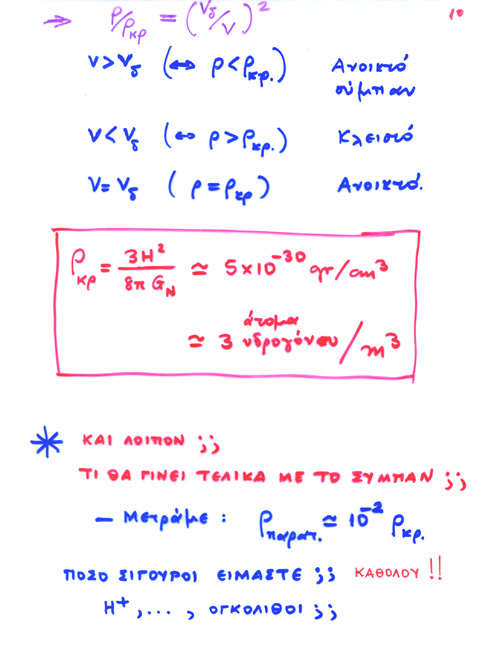 10
⇒ ρ/ρκρ = (Vδ/V)²
V>Vδ (↔ ρ<ρκρ.) Ανοικτό
σύμπαν
V<Vδ (↔ ρ>ρκρ.) Κλειστό
V=Vδ (ρ=ρκρ) Ανοικτό.
ρκρ = 3H²/8π G_N ≃ 5×10⁻³⁰ gr/cm³
≃ 3 άτομα υδρογόνου/m³
* ΚΑΙ ΛΟΙΠΟΝ ;;
ΤΙ ΘΑ ΓΙΝΕΙ ΤΕΛΙΚΑ ΜΕ ΤΟ ΣΥΜΠΑΝ ;;
– Μετράμε : ρπαρατ. ≃ 10⁻² ρκρ.
ΠΟΣΟ ΣΙΓΟΥΡΟΙ ΕΙΜΑΣΤΕ ;; ΚΑΘΟΛΟΥ !!
H⁺, ..., ΟΓΚΟΛΙΘΟΙ ;;